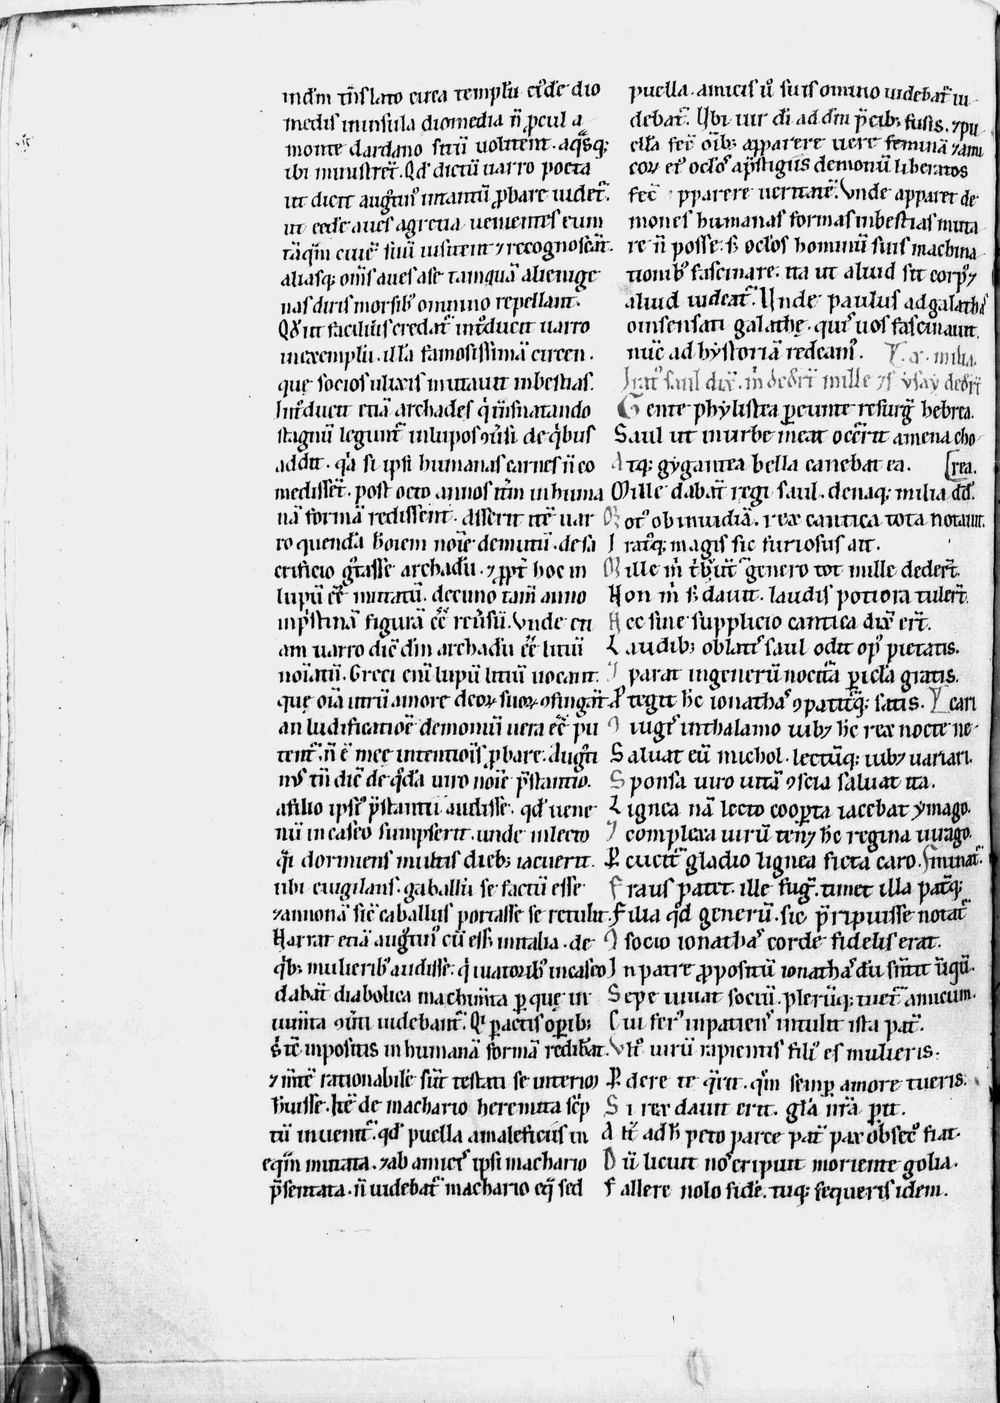 indm̄ tn̄slato circa templū eiᵈde dio
medis in insula diomedia n̄ ꝓcul a
monte dardano sitū uolitent. aqsqꝫ
ibi ministret. Qd̄ dictū uarro poeta
ut dicit augˀtinˀ intantū ꝓbare uidet̄.
ut eedē aues agrecia uenientes eum
tāqm̄ ciuē suū uisitent ⁊ recognoscāt.
aliasqꝫ om̄s aues a se tamquā alienige
nas diris morsibˀ omnino repellant.
Qd̄ ut facilius credat̄ int̓ducit uarro
inexemplū. illā famosissimā circen.
que socios ulixis mutauit in bestias.
Int̓ducit etiā archades q̇ tn̄snatando
stagnū legunt̄ in lupos ꝯūsi de qͥbus
addit. qͣ si ipsi humanas carnes n̄ co
medissēt. post octo annos itm̄ in huma
nā formā redissent. Asserit itē uar
ro quendā hoīem noīe demutū. de sa
crificio gͣtasse archadū. ⁊ ꝓpt̄ hoc in
lupū ēē mutatū. decimo tam̄ anno
in pͥstinā figurā ēē reūsū. Vnde eti
am uarro diē dm̄ archadū ēē litiū
noīatū. Greci enī lupū litiū uocant.
que oīa utrū amore deoꝝ suoꝝ ꝯfingāt
an ludificatiōe demonuū uera ēē pu
tent̄. n̄ ē meę intentioīs ꝓbare. Augˀti
nˀ tn̄ diē de qͦda uiro noīe pͥstantio.
a filio ipsˀ pͥstantii audisse. qd̄ uene
nū in caseo sumpserit. unde in lecto
qͥ dormiens multis diebꝫ iacuerit.
ubi euigilans. gaballū se factū esse
⁊ annonā sic̄ caballus portasse se retulit.
Narrat etiā augˀtinˀ cū ess̄ in italia. de
qͥbꝫ mulieribˀ audisse. q̇ uiatoribˀ in caseo
dabāt diabolica machin̄ta ꝑ que in
ium̄ta ꝯūti uidebant̄. Qi ꝑactis oꝑibꝫ
s̓ tē inpositis in humanā formā redibāt.
⁊ int̄ē rationabile sūt testati se interiꝰ
hūisse. Itē de machario heremita sc̄p
tū inuenit̄. qd̄ puella a maleficiis in
eqm̄ mutata. ⁊ ab amicˀ ipsi machario
p̄sentata. n̄ uidebat̄ machario eq̄ sed
puella. amicis ū suis omnino uidebat̄ iu
debat̄. Ubi uir di ad dm̄ p̄cibꝫ fusis. ⁊ pu
ellā fec̄ oībꝫ apparere uere feminā ⁊ ami
coꝝ eiˀ oclos a p̄stigiis demonū liberatos
fec̄ pparere ueritatē. Vnde apparet de
mones humanas formas in bestias muta
re n̄ posse. sꝫ oclos hominū suis machina
tionibˀ fascinare. ita ut aliud sit corpꝰ ⁊
aliud uideat̄. Unde paulus ad galathas
o insensati galathę. quiˀ uos fascinauit.
nūc ad hystoriā redeamˀ. V. x. milia.
Iratˀ saul dix̄. m̄ dedērt̄ mille ⁊ fˀ ysay dedērt̄
Gente phylistea pereunte resurgˀ hebrea.
Saul ut in urbe meat occ̄rit amena cho
Atqꝫ gygantea bella canebat ea. [rea.
Mille dabāt regi saul. denaqꝫ milia dd̄.
Motˀ ob inuidiā. rex cantica tota notauit.
Iratˀqꝫ magis sic furiosus ait.
Mille m̄ tbūt̄ genero tot mille dedert̄.
Non m̄ sꝫ dauit. laudis potiora tulert̄.
Hec sine supplicio cantica dix̄ ert̄.
Laudibꝫ oblatˀ saul odit opˀ pietatis.
I parat in generū nocitā ꝑicla gratis.
Ptegit hc̄ ionathaˀ ꝯpatit̄qꝫ satis. V cari
Iiugˀ in thalamo iubꝫ hc̄ rex nocte ne
Saluat eū michol. lectūqꝫ iubꝫ uariari.
Sponsa uiro uitā ꝯscia saluat ita.
Lignea nā lecto cooꝑta iacebat ymago.
I complexa uirū tenꝫ hc̄ regina uirago.
Pcutit̄ gladio lignea ficta caro. S minat̄
Fraus patet. ille fugˀ. timet illa pat̄qꝫ
Filia qd̄ generū. sic p̄ripuisse notat̄
I socio ionathaˀ corde fidelis erat.
In patre ꝓpositū ionathaˀ dū sntit ūqū.
Sepe iuuat sociū. plerūqꝫ tuet̄ amicum.
Cui ferˀ inpatiensˀ intulit ista pat̄.
Vltˀ uirū rapientis filiˀ es mulieris.
Pdere te qͥrit. qm̄ semꝑ amore tueris.
Si rex dauit erit. glā n̄rā ꝑit.
At̄ ad hˀ peto parce pat̄ pax obsecˀ fiat.
Dū licuit noˀ eripuit moriente golia.
Fallere nolo fidē. tuqꝫ sequeris idem.